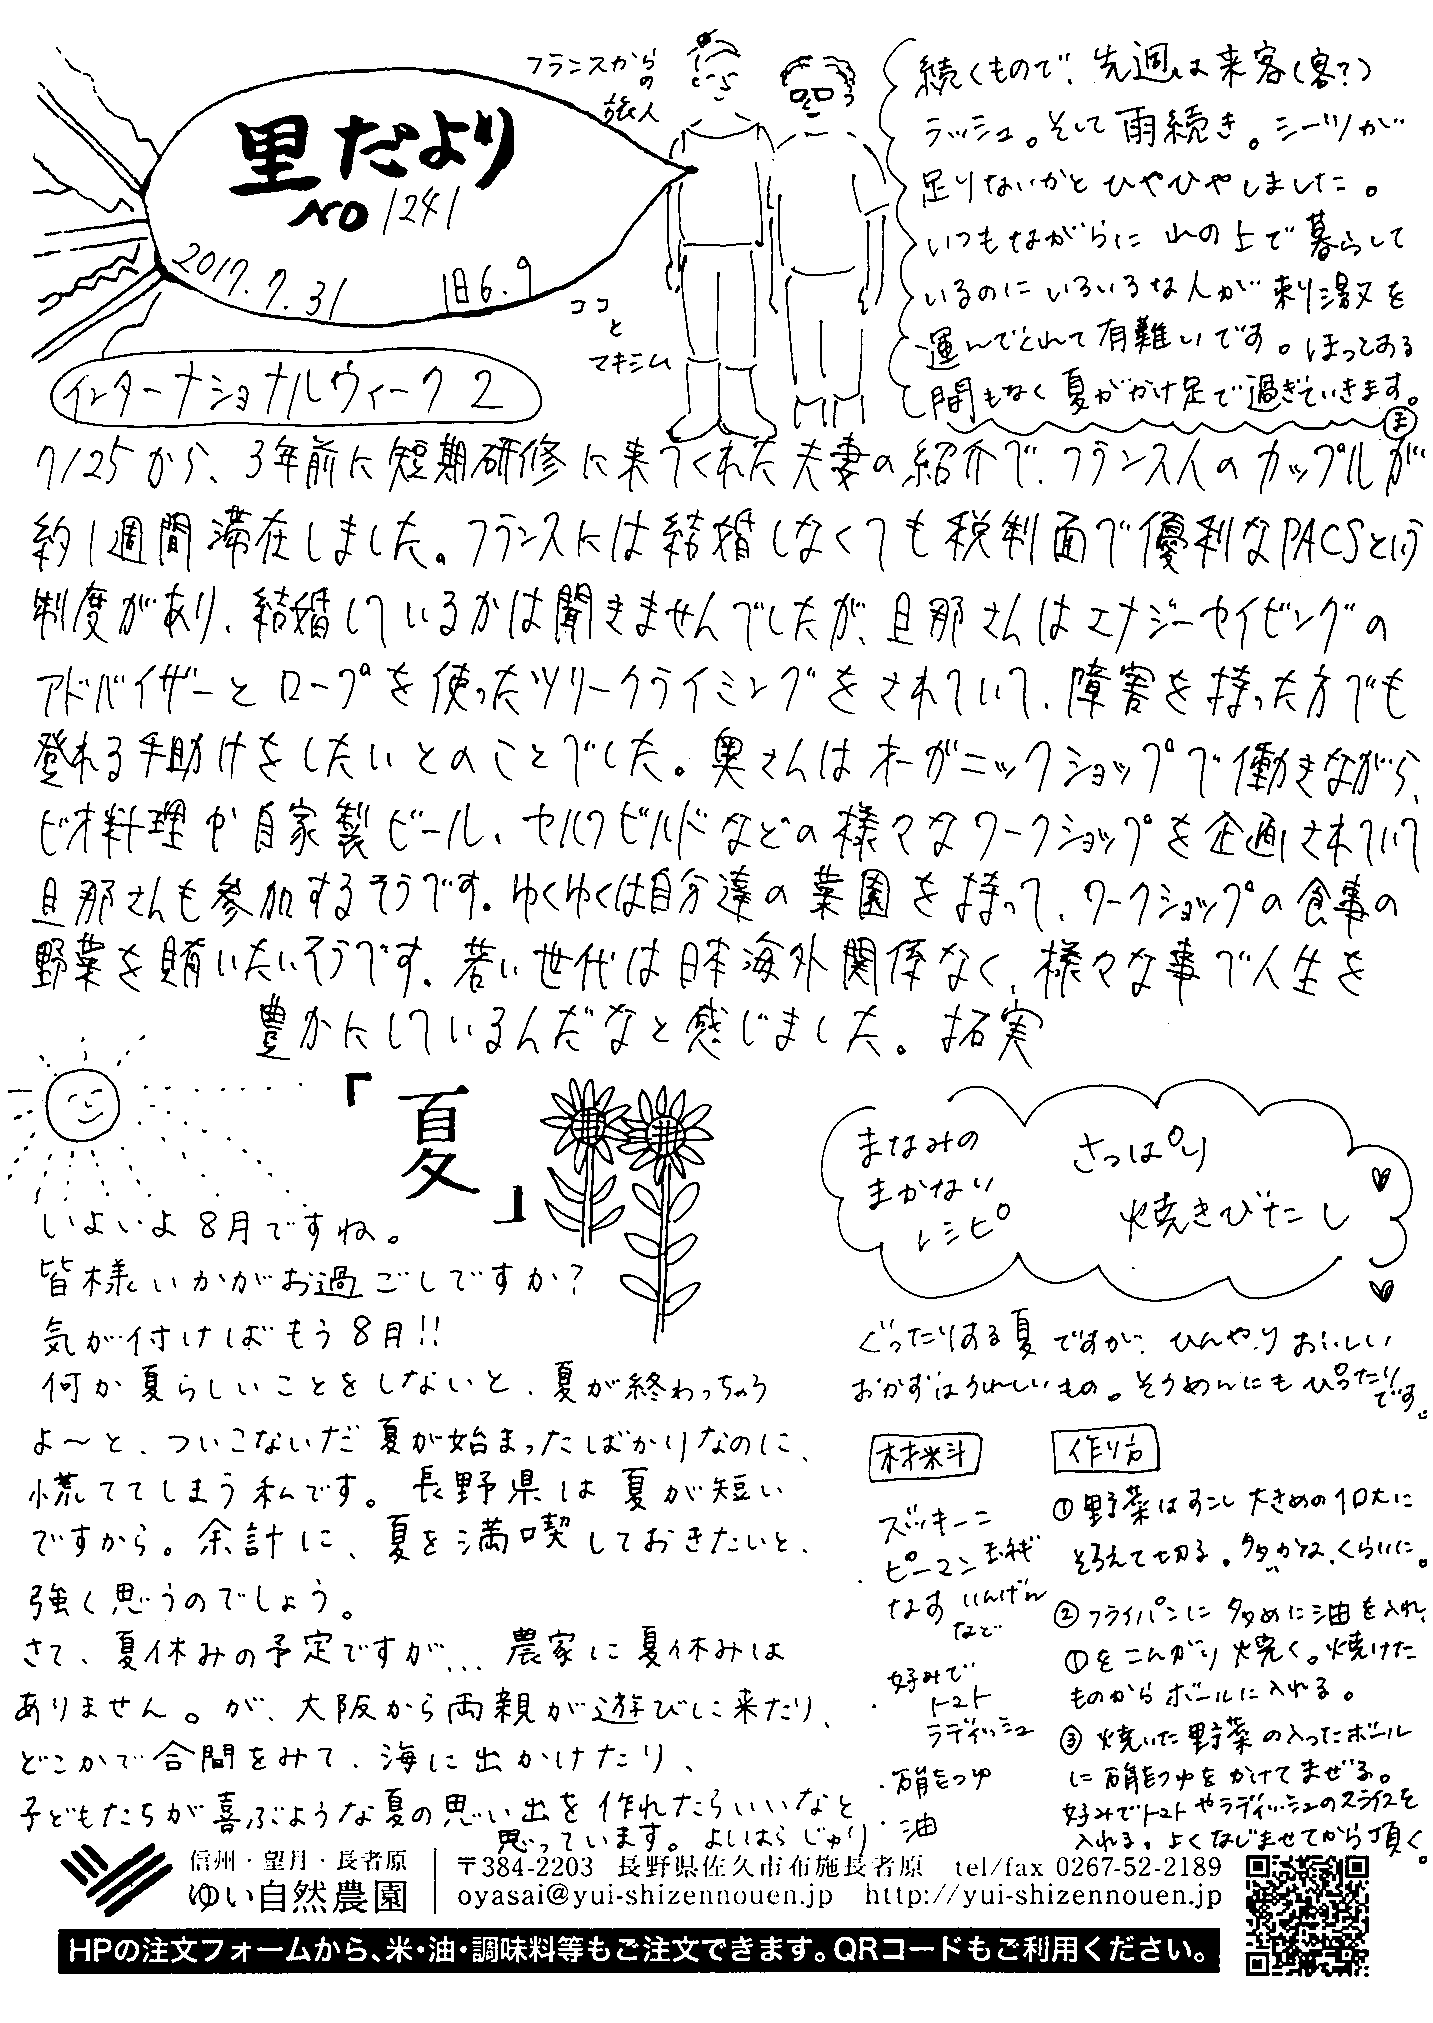 里だより
NO 1241
2017.7.31 旧6.9
フランスから
の
旅人
ココ
と
マキシム
続くもので、先週は来客(害?)
ラッシュ。そして雨続き。シーツが
足りないかとひやひやしました。
いつもながらに山の上で暮らして
いるのにいろいろな人が刺激を
運んでくれて有難いです。ほってある
間もなく夏がかけ足で過ぎていきます。
インターナショナルウィーク2
7/25から、3年前に短期研修に来てくれた夫妻の紹介で、フランス人のカップルが
約1週間滞在しました。フランスには結婚しなくても税制面で優利なPACSという
制度があり、結婚しているかは聞きませんでしたが、旦那さんはエナジーセイビングの
アドバイザーとロープを使ったツリークライミングをされていて、障害を持った方でも
登れる手助けをしたいとのことでした。奥さんはオーガニックショップで働きながら、
ビオ料理や自家製ビール、セルフビルドなどの様々なワークショップを企画されていて
旦那さんも参加するそうです。ゆくゆくは自分達の菜園を持って、ワークショップの食事の
野菜を賄いたいそうです。若い世代は日本海外関係なく、様々な事で人生を
豊かにしているんだなと感じました。拓実
「夏」
いよいよ8月ですね。
皆様いかがお過ごしですか?
気が付けばもう8月!!
何か夏らしいことをしないと、夏が終わっちゃう
よ〜と、ついこないだ夏が始まったばかりなのに、
慌ててしまう私です。長野県は夏が短い
ですから。余計に、夏を満喫しておきたいと、
強く思うのでしょう。
さて、夏休みの予定ですが... 農家に夏休みは
ありません。が、大阪から両親が遊びに来たり、
どこかで合間をみて、海に出かけたり、
子どもたちが喜ぶような夏の思い出を作れたらいいなと
思っています。よしはらじゅり
まなみの
まかない
レシピ
さっぱり
焼きびたし
ぐったりする夏ですが、ひんやりおいしい
おかずはうれしいもの。そうめんにもぴったり
です。
材料
ズッキーニ
・ピーマン 玉ねぎ
なす いんげん
など
・好みで
トマト
ラディッシュ
・万能つゆ
・油
作り方
①野菜はすこし大きめの1口大に
そろえて切る。タダかなえくらいに。
②フライパンに多めに油を入れ、
①をこんがり焼く。焼けた
ものからボールに入れる。
③焼いた野菜の入ったボール
に万能つゆをかけてまぜる。
好みでトマトやラディッシュのスライスを
入れる。よくなじませてから頂く。
信州・望月・長者原
ゆい自然農園
〒384-2203 長野県佐久市布施長者原 tel/fax 0267-52-2189
oyasai@yui-shizennouen.jp http://yui-shizennouen.jp
HPの注文フォームから、米・油・調味料等もご注文できます。QRコードもご利用ください。